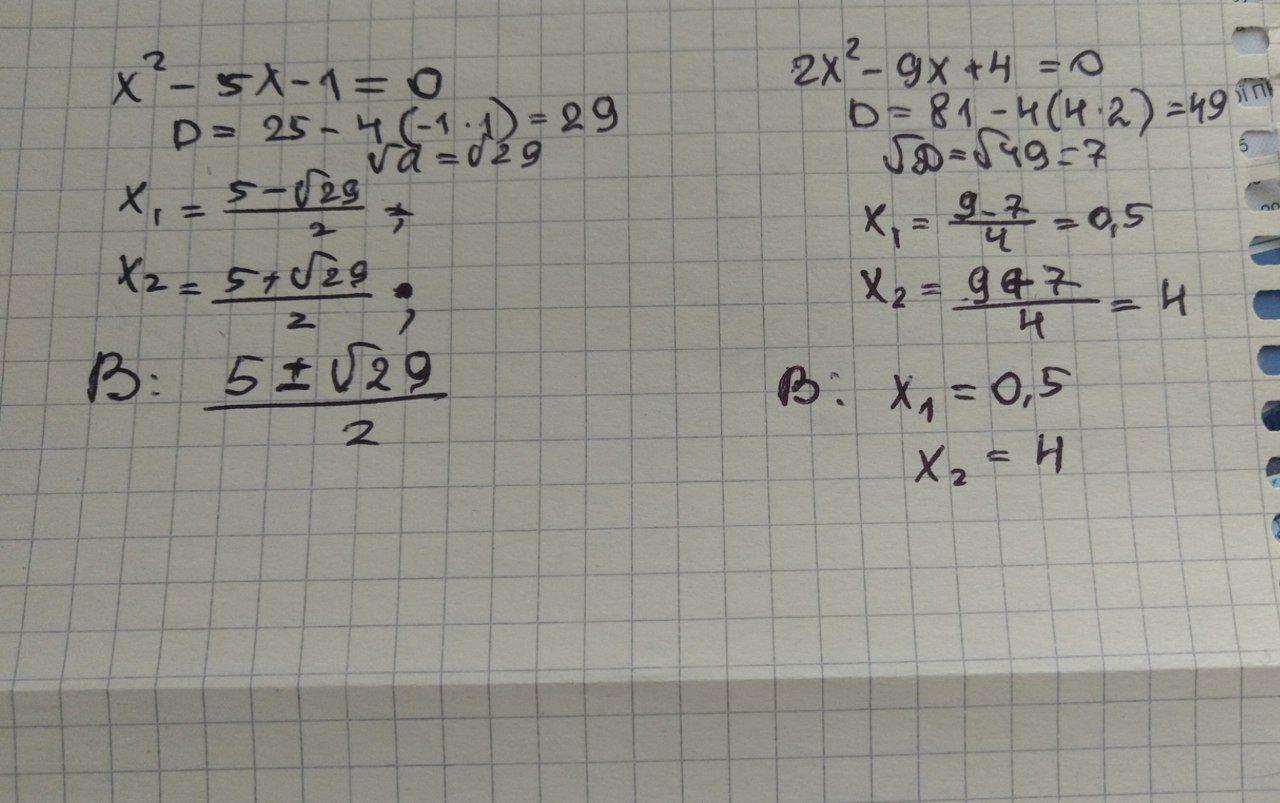 x² - 5x - 1 = 0
D = 25 - 4(-1·1) = 29
√d = √29
x₁ = (5 - √29)/2 ;
x₂ = (5 + √29)/2 ;
В: (5 ± √29)/2
2x² - 9x + 4 = 0
D = 81 - 4(4·2) = 49
√D = √49 = 7
x₁ = (9 - 7)/4 = 0,5
x₂ = (9 + 7)/4 = 4
В: x₁ = 0,5
x₂ = 4